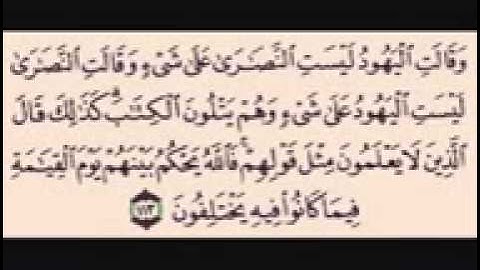 وَقَالَتِ ٱلْيَهُودُ لَيْسَتِ ٱلنَّصَٰرَىٰ عَلَىٰ شَىْءٍ وَقَالَتِ ٱلنَّصَٰرَىٰ
لَيْسَتِ ٱلْيَهُودُ عَلَىٰ شَىْءٍ وَهُمْ يَتْلُونَ ٱلْكِتَٰبَ ۗ كَذَٰلِكَ قَالَ
ٱلَّذِينَ لَا يَعْلَمُونَ مِثْلَ قَوْلِهِمْ ۚ فَٱللَّهُ يَحْكُمُ بَيْنَهُمْ يَوْمَ ٱلْقِيَٰمَةِ
فِيمَا كَانُوا۟ فِيهِ يَخْتَلِفُونَ ١١٣